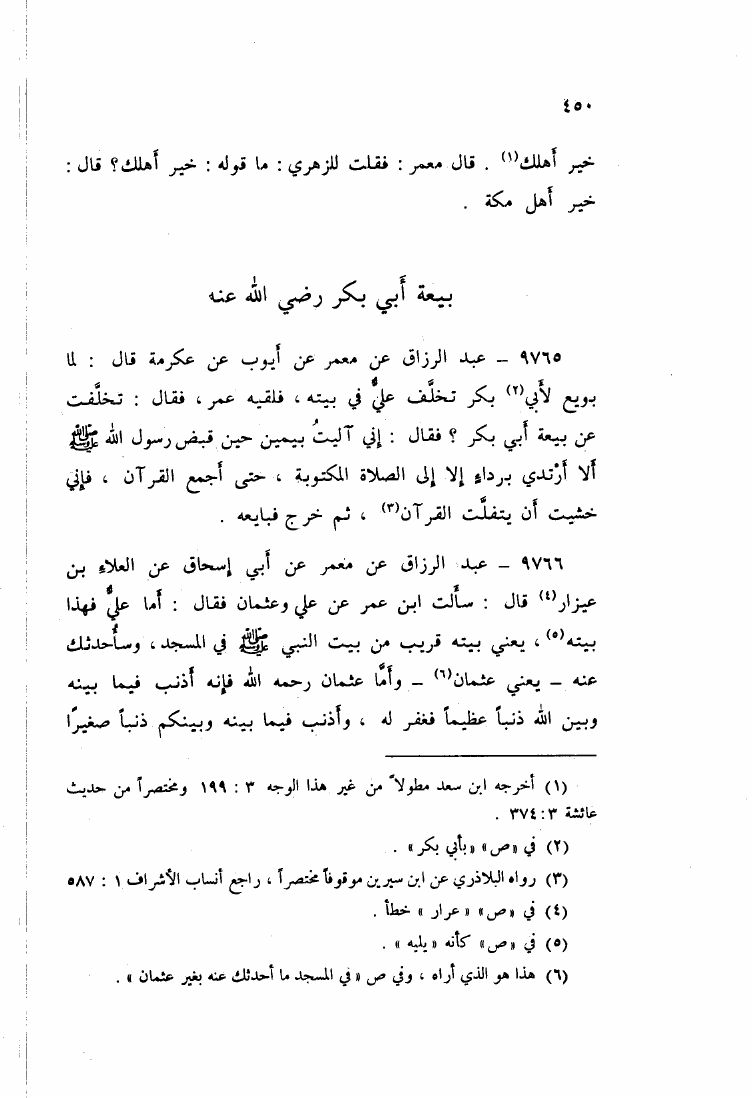 ٤٥٠
خير أهلك(١) . قال معمر : فقلت للزهري : ما قوله : خير أهلك؟ قال :
خير أهل مكة .
بيعة أبي بكر رضي الله عنه
٩٧٦٥ – عبد الرزاق عن معمر عن أيوب عن عكرمة قال : لما
بويع لأبي(٢) بكر تخلَّف عليٌّ في بيته ، فلقيه عمر ، فقال : تخلَّفت
عن بيعة أبي بكر ؟ فقال : إني آليتُ بيمين حين قبض رسول الله ﷺ
ألا أرْتدي برداءٍ إلا إلى الصلاة المكتوبة ، حتى أجمع القرآن ، فإني
خشيت أن يتفلَّت القرآن(٣) ، ثم خرج فبايعه .
٩٧٦٦ – عبد الرزاق عن معمر عن أبي إسحاق عن العلاءِ بن
عيزار(٤) قال : سأَلت ابن عمر عن علي وعثمان فقال : أما عليٌّ فهذا
بيته(٥) ، يعني بيته قريب من بيت النبي ﷺ في المسجد ، وسأُحدثك
عنه – يعني عثمان(٦) – وأمَّا عثمان رحمه الله فإنه أذنب فيما بينه
وبين الله ذنباً عظيماً فغفر له ، وأذنب فيما بينه وبينكم ذنباً صغيرًا
(١) أخرجه ابن سعد مطولاً من غير هذا الوجه ٣ : ١٩٩ ومختصراً من حديث
عائشة ٣ : ٣٧٤ .
(٢) في «ص» «بأبي بكر» .
(٣) رواه البلاذري عن ابن سيرين موقوفاً مختصراً ، راجع أنساب الأشراف ١ : ٥٨٧
(٤) في «ص» «عرار» خطأ .
(٥) في «ص» كأنه «يليه» .
(٦) هذا هو الذي أراه ، وفي ص «في المسجد ما أحدثك عنه بغير عثمان» .